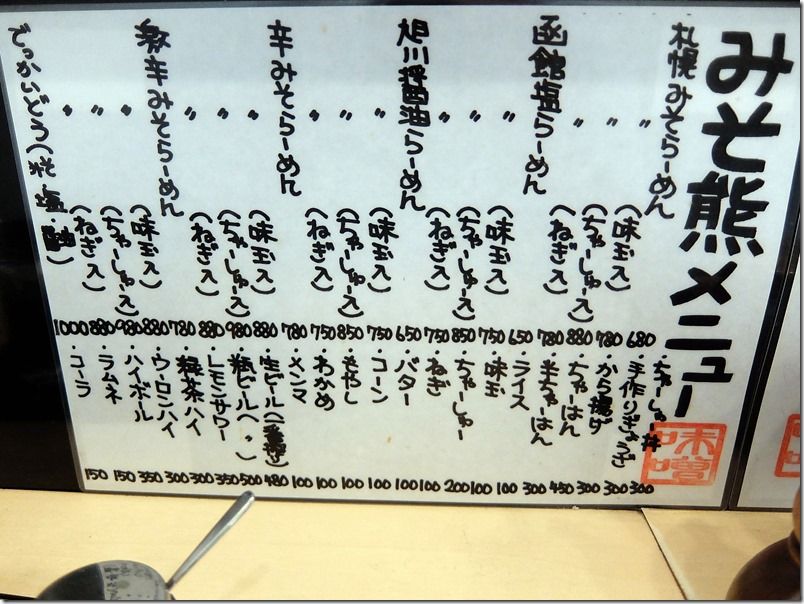 みそ熊メニュー
味噌
札幌みそらーめん 680
〃 (味玉入) 780
〃 (ちゃーしゅー入) 880
〃 (ねぎ入) 780
函館塩らーめん 650
〃 (味玉入) 750
〃 (ちゃーしゅー入) 850
〃 (ねぎ入) 750
旭川醤油らーめん 650
〃 (味玉入) 750
〃 (ちゃーしゅー入) 850
〃 (ねぎ入) 750
辛みそらーめん 780
〃 (味玉入) 880
〃 (ちゃーしゅー入) 980
〃 (ねぎ入) 880
激辛みそらーめん 780
〃 (味玉入) 880
〃 (ちゃーしゅー入) 980
〃 (ねぎ入) 880
でっかいどう( 塩 醤油) 1000
・ちゃーしゅー丼 300
・手作りぎょうざ 300
・から揚げ 300
・ちゃーはん 450
・半ちゃーはん 300
・ライス 100
・味玉 100
・ちゃーしゅー 200
・ねぎ 100
・バター 100
・コーン 100
・もやし 100
・わかめ 100
・メンマ 100
・生ビール(一番搾り) 480
・瓶ビール(〃) 500
・レモンサワー 350
・緑茶ハイ 300
・ウーロンハイ 300
・ハイボール 350
・ラムネ 150
・コーラ 150